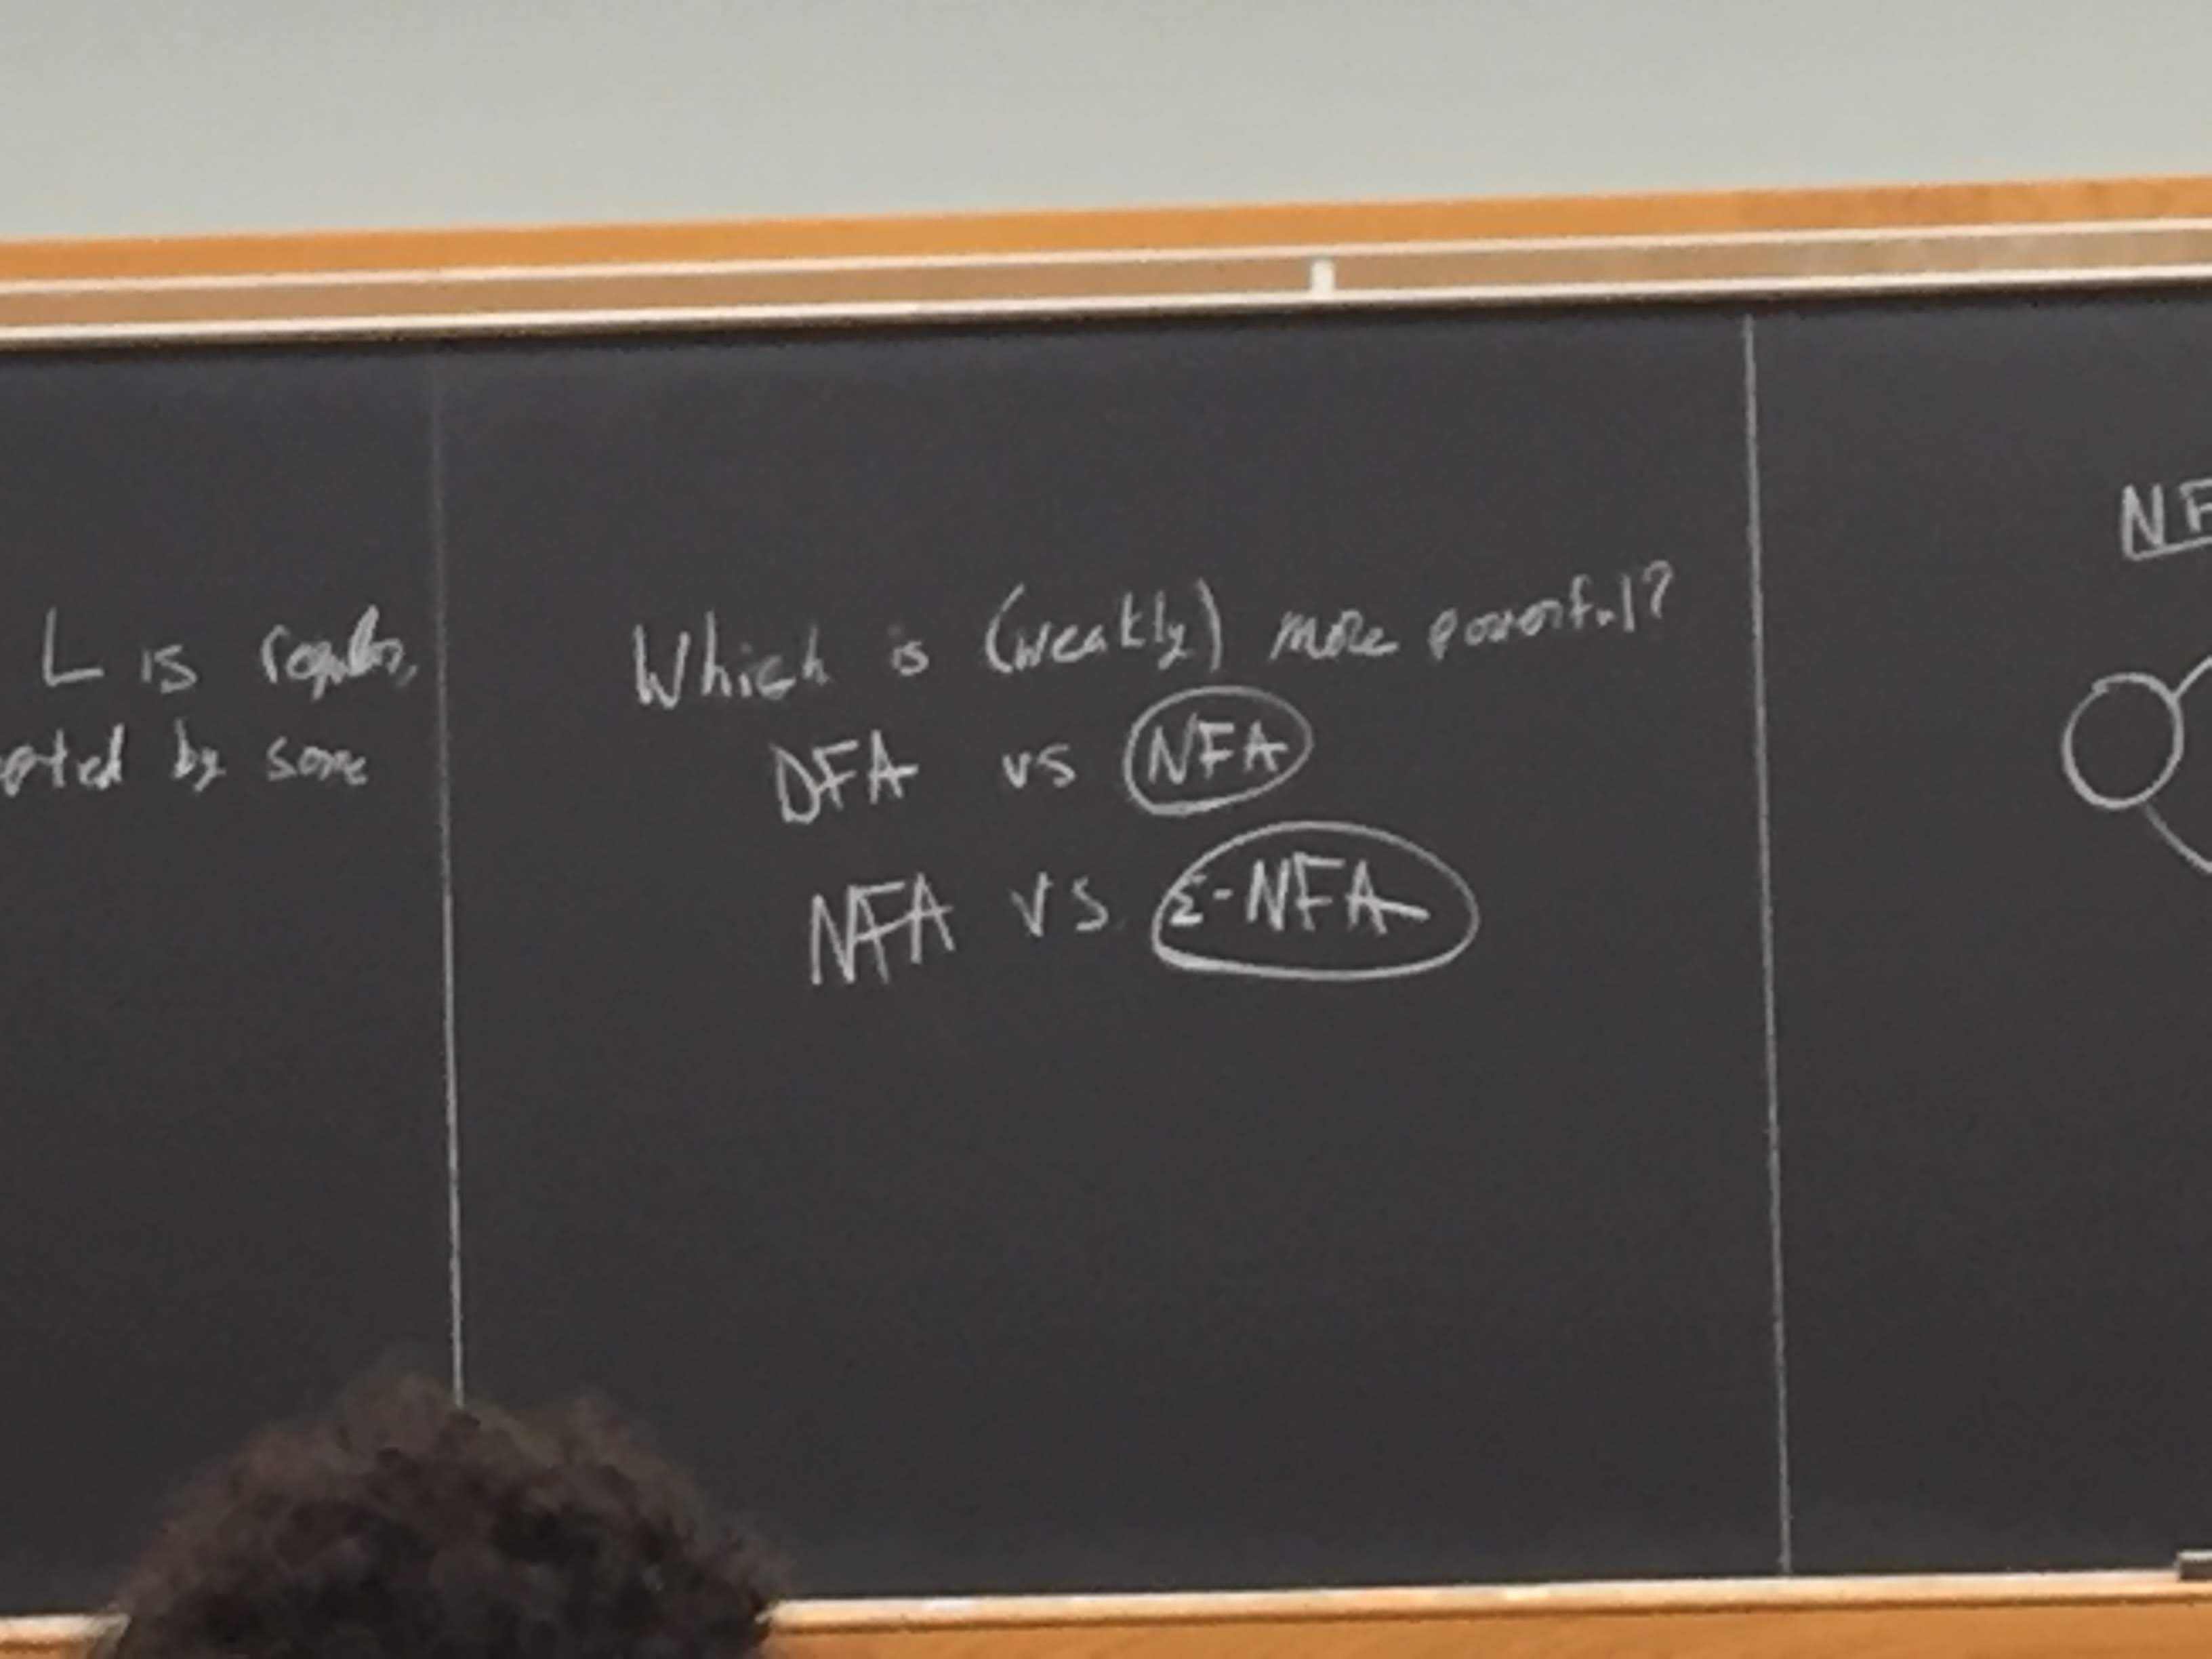 L is regular,
by some
Which is (weakly) more powerful?
DFA vs NFA
NFA vs ε-NFA
NF